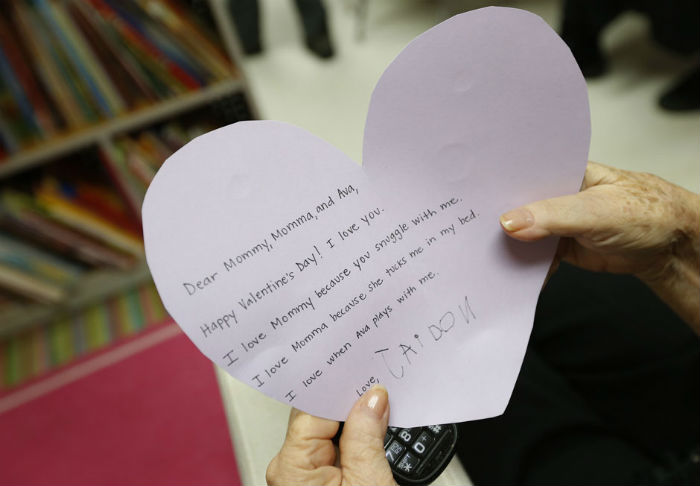 Dear Mommy, Momma, and Ava,
Happy Valentine's Day! I love you.
I love Mommy because you snuggle with me.
I love Momma because she tucks me in my bed.
I love when Ava plays with me.
Love,
TAiDON
8
0
#
7
*